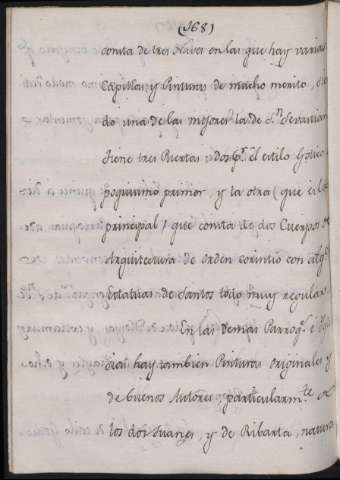 (168)
consta de tres Naves en las que hay varias
Capillas y Pinturas de mucho merito, sien
do una de las mejores la de Sn. Sevastian
Tiene tres Puertas, dos pr. el estilo Gotico
poquisimo primor, y la otra (que es la
principal) que consta de dos Cuerpos de
Arquitectura de orden corintio con alg
Estatuas de Santos todo muy regular.
En las demas Parroqs. é
sias hay tambien Pinturas originales y
de buenos Autores, particularmte. de
los dos Juanes, y de Ribarta, natura